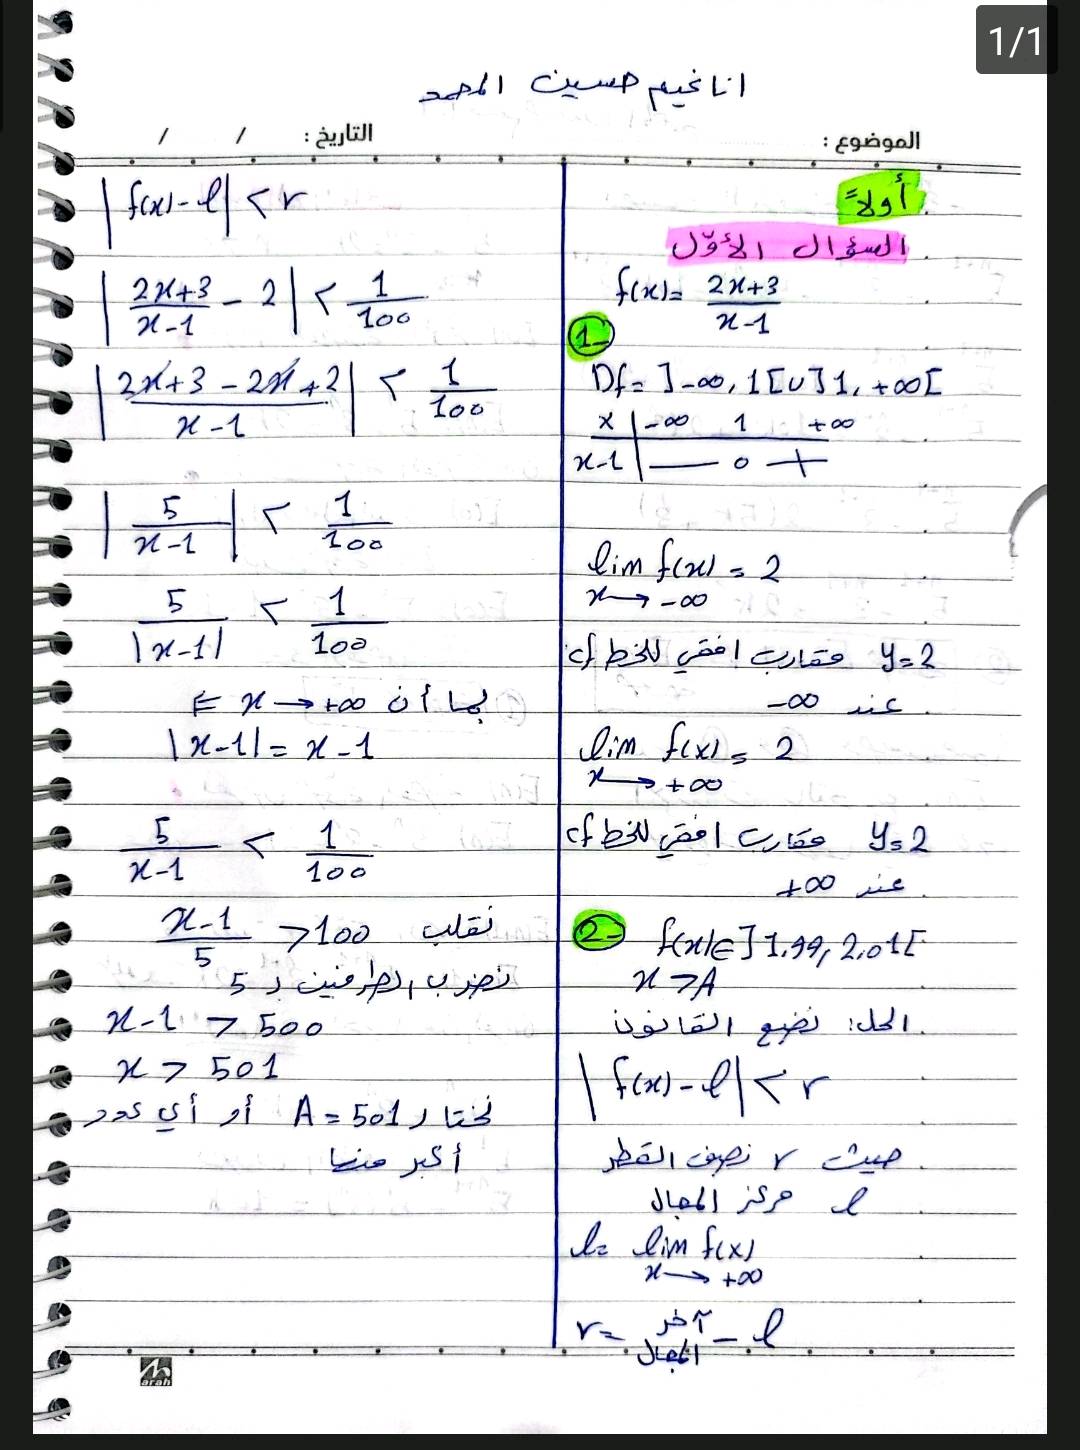 1/1
انا نحيم حسين المحمد
الموضوع :
التاريخ : / /
أولاً
السؤال الأوّل
f(x) = \frac{2x+3}{x-1}
1-
Df = ]-∞, 1[ ∪ ]1, +∞[
x | -∞ 1 +∞
x-1 | — 0 +
lim f(x) = 2
x → -∞
y=2 مقارب افقي للخط cf
عند -∞
lim f(x) = 2
x → +∞
y=2 مقارب افقي للخط cf
عند +∞
2- f(x) ∈ ]1.99, 2.01[
x > A
الحل: نضع القانون
|f(x) - l| < r
حيث r نصف القطر
l مركز المجال
l = lim f(x)
x → +∞
r = آخر المجال - l
|f(x) - l| < r
|\frac{2x+3}{x-1} - 2| < \frac{1}{100}
|\frac{2x+3-2x+2}{x-1}| < \frac{1}{100}
|\frac{5}{x-1}| < \frac{1}{100}
\frac{5}{|x-1|} < \frac{1}{100}
بما أن x → +∞ ⇐
|x-1| = x-1
\frac{5}{x-1} < \frac{1}{100}
نقلب \frac{x-1}{5} > 100
نضرب الطرفين بـ 5
x-1 > 500
x > 501
نختار A = 501 أو أي عدد
أكبر منها
arah